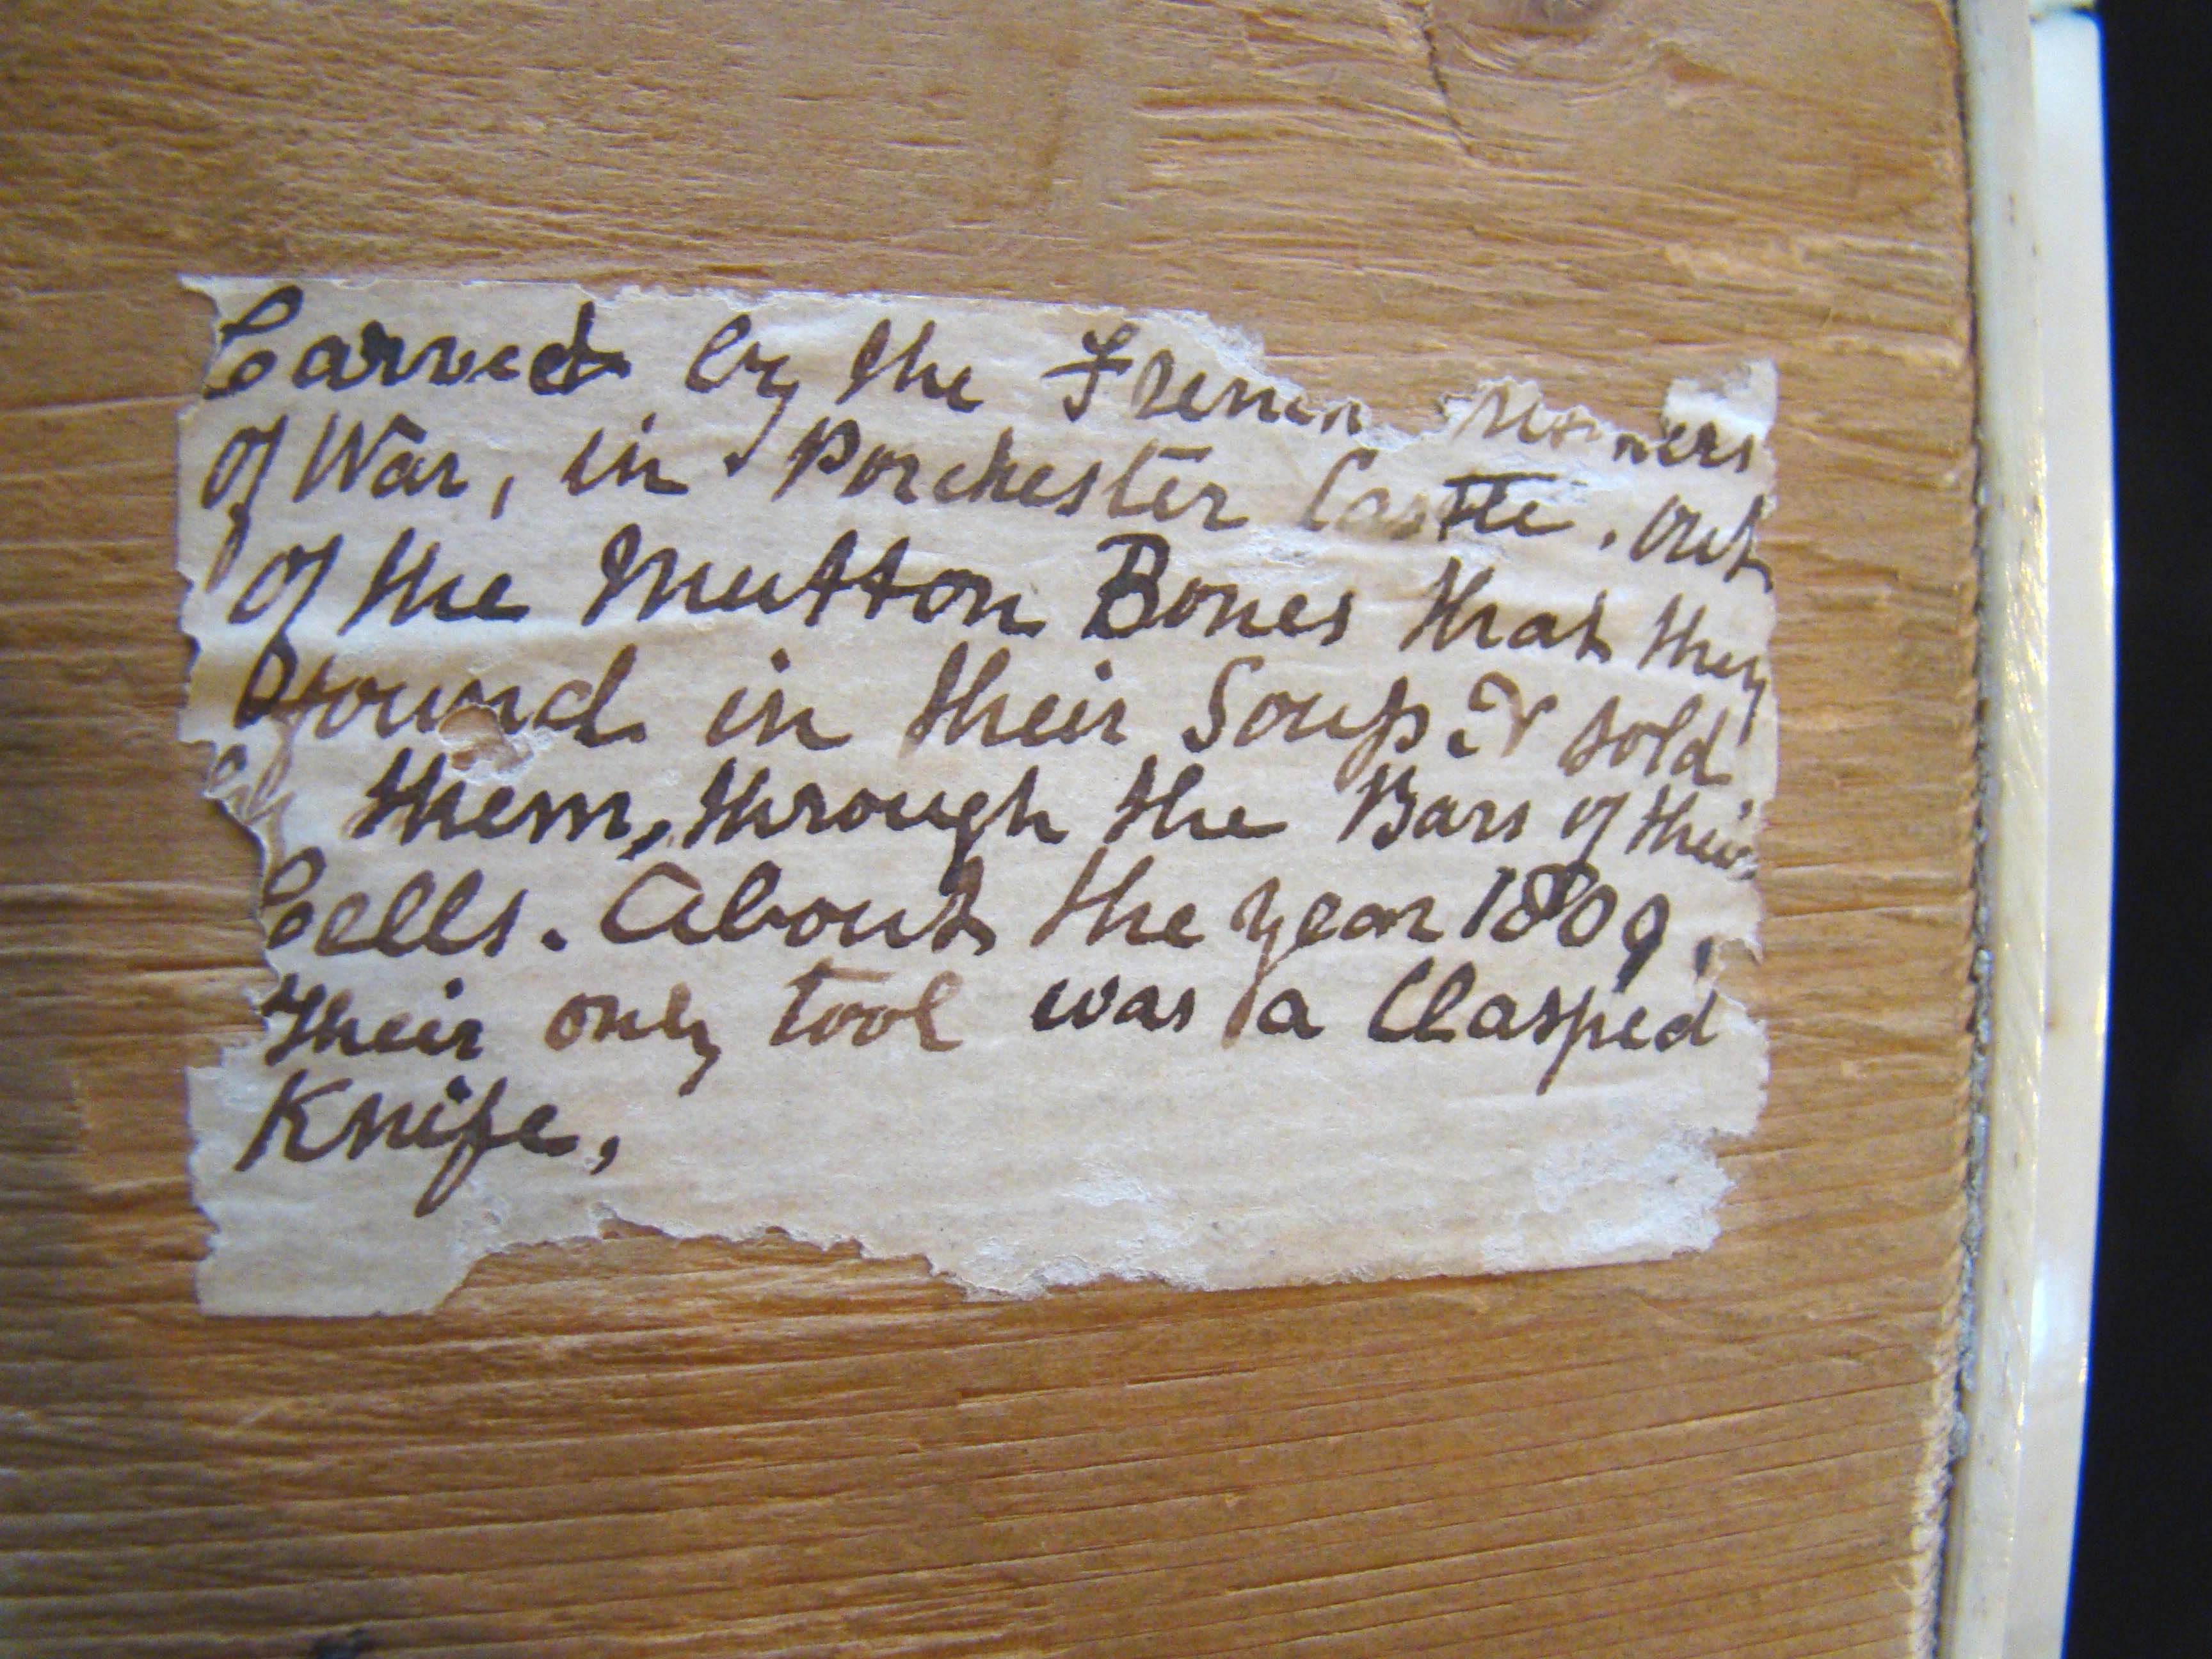 Carved by the French Prisoners
of War, in Porchester Castle. out
of the Mutton Bones that they
found in their Soup. & sold
them, through the Bars of their
Cells. About the year 1809.
Their only tool was a Clasped
Knife,